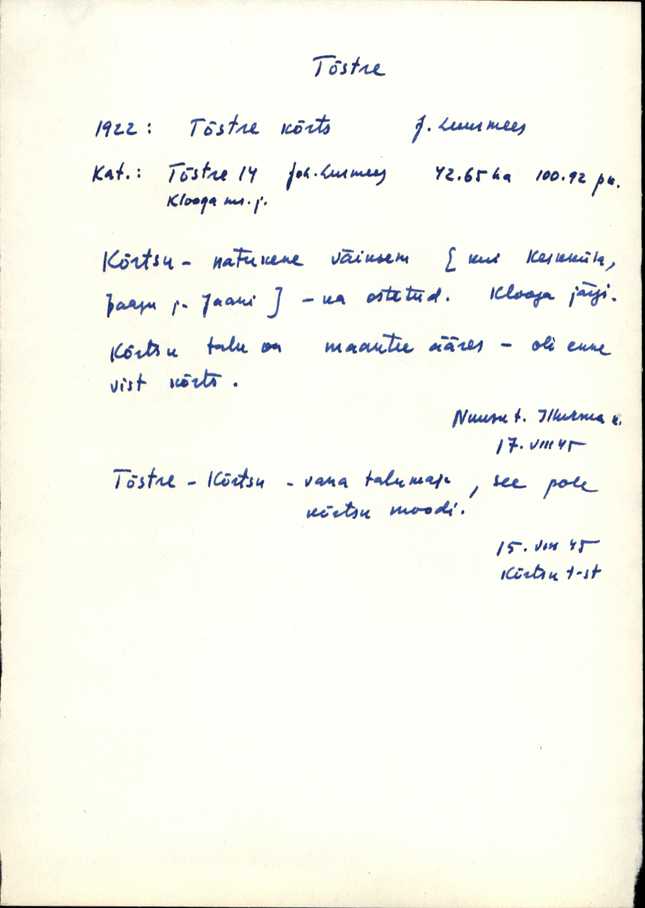 Tõstre
1922: Tõstre kõrts J. Luurmees
Kat.: Tõstre 14 Joh. Luurmees 42.65 ha 100.92 pu.
Klooga m. j.
Kõrtsu – natukene väiksem [ kui Keskküla,
Jaagu ja Jaani ] – ka ostetud. Klooga järgi.
Kõrtsu talu on maantee ääres – oli enne
vist kõrts.
Nuusu t.
17. VIII 45
Tõstre – Kõrtsu – vana talumaja, see pole
kõrtsu moodi.
15. VIII 45
Kõrtsu t-st